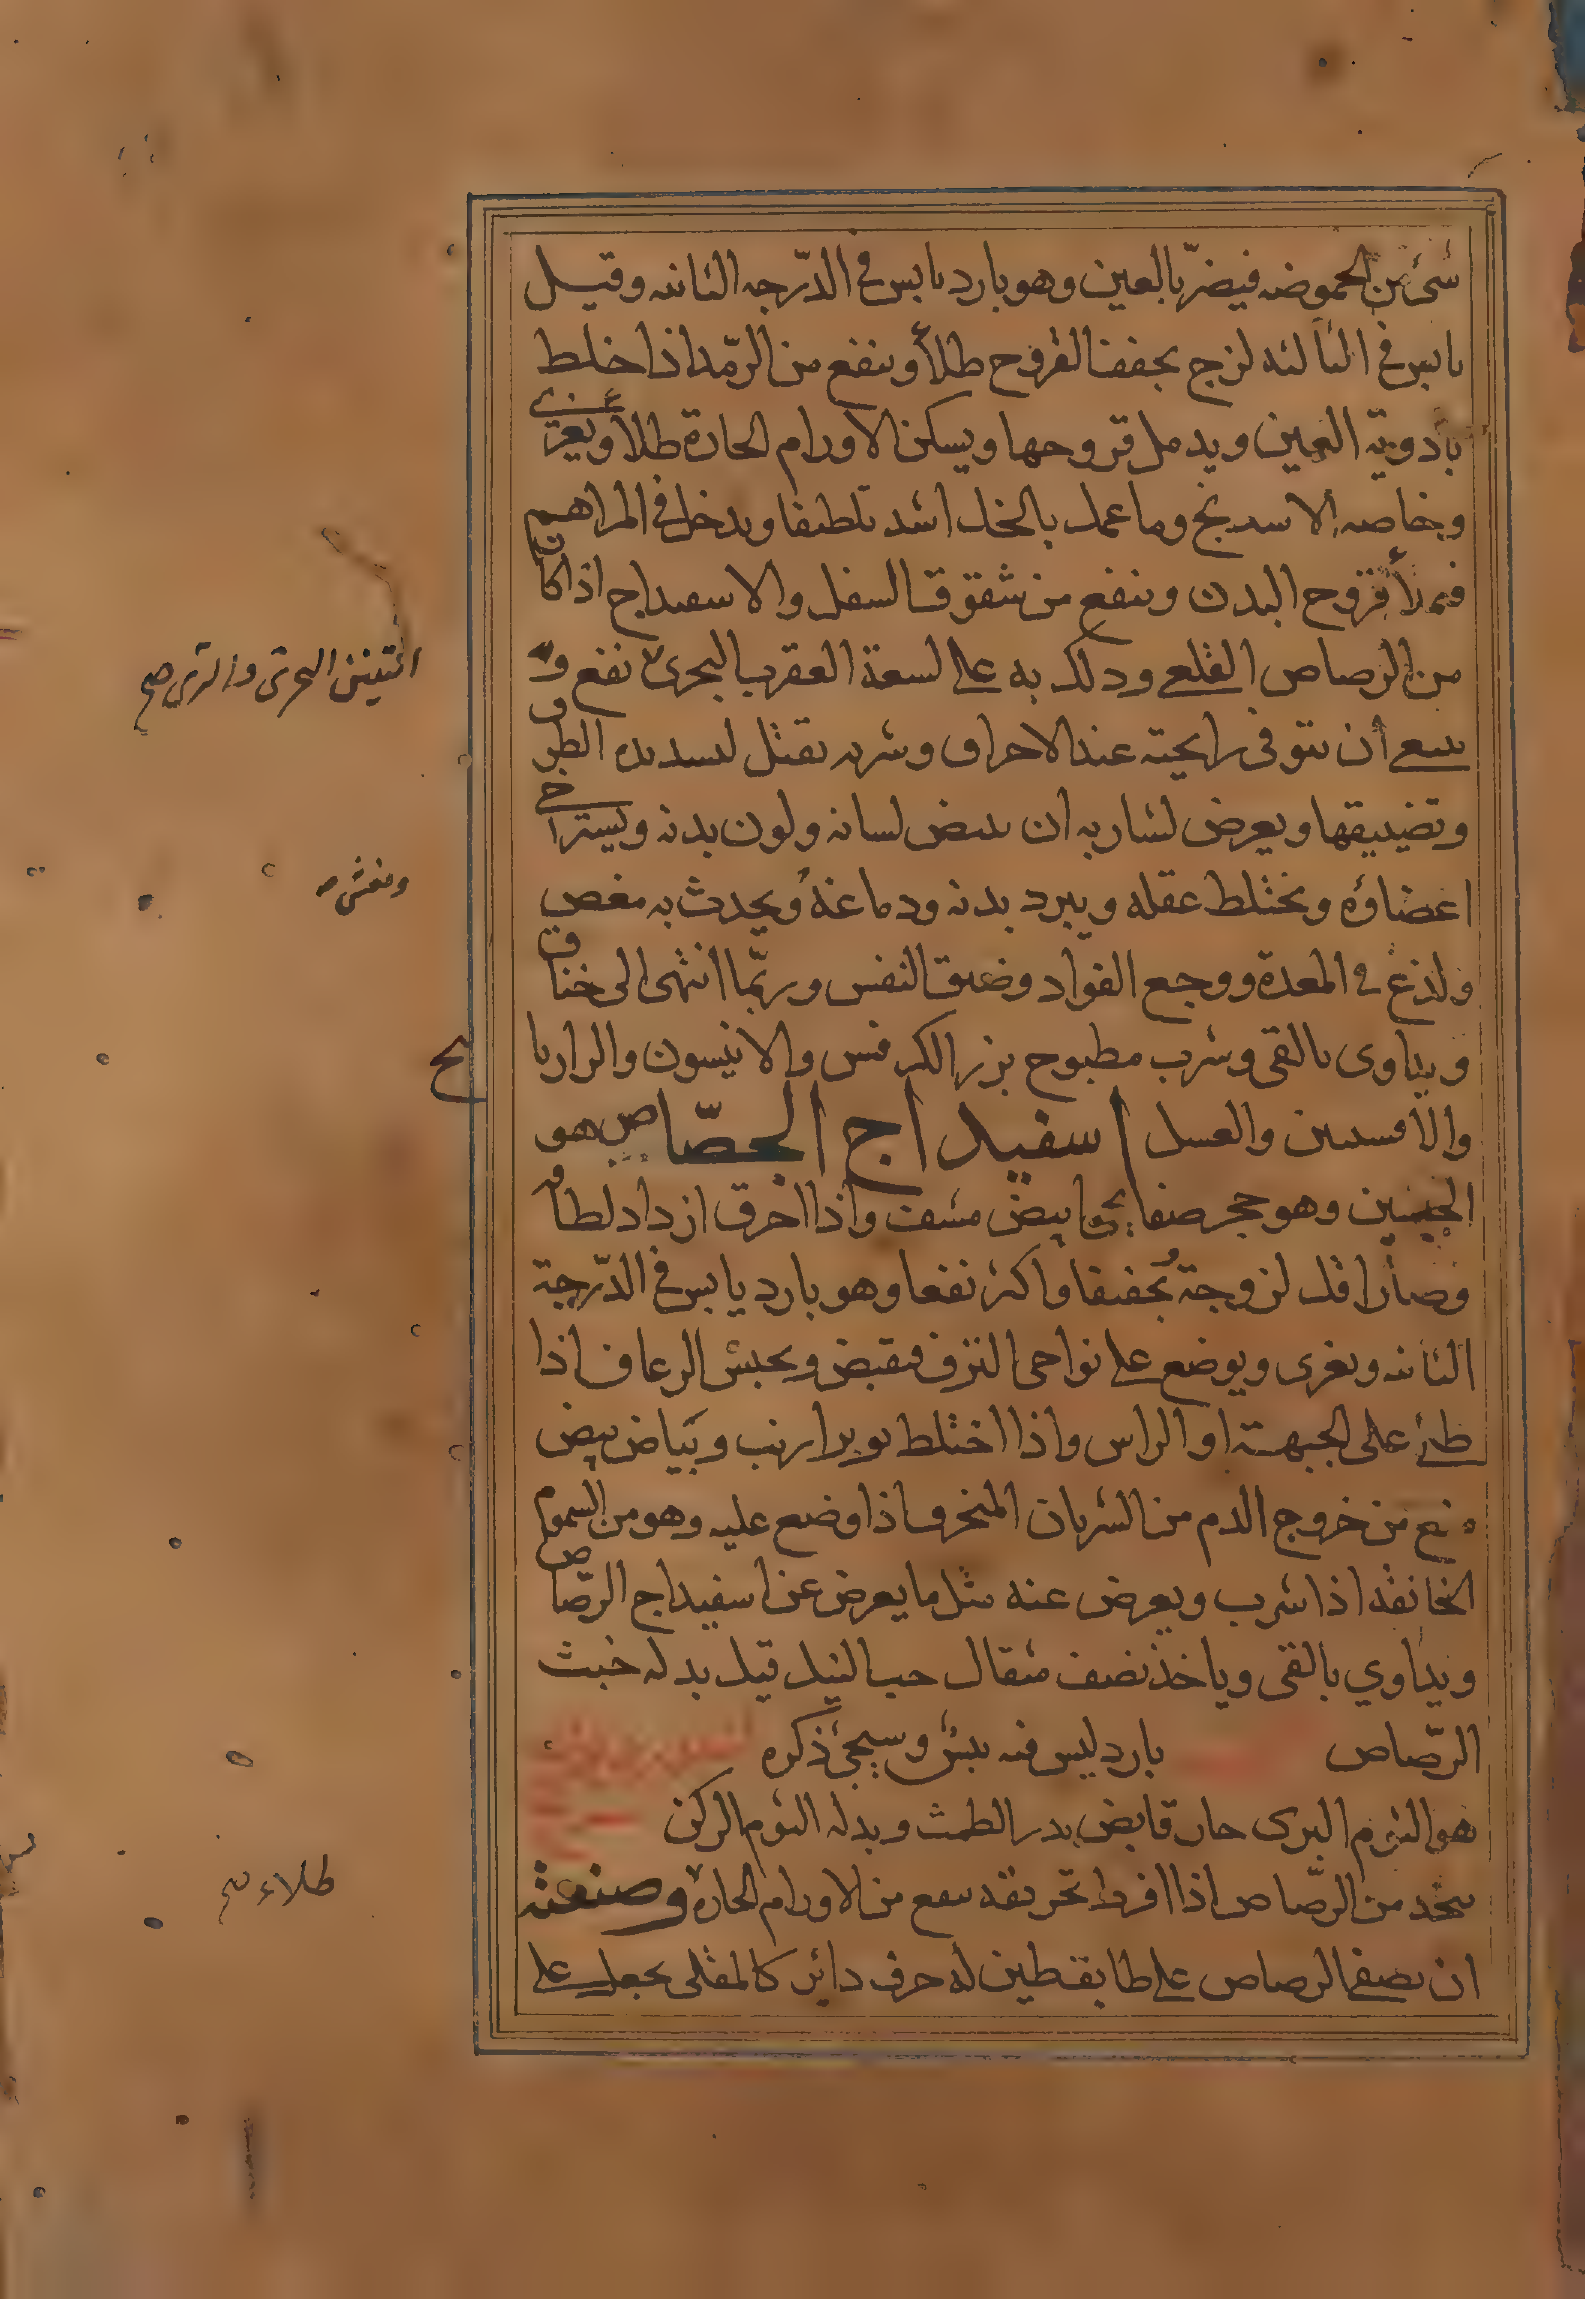 شئ من الحموضه فيضرّ بالعين وهو بارد يابس في الدّرجه الثانيه وقيل
يابس في الثالثه لزج يجفف القروح طلاً وينفع من الرّمد اذا خلط
بأدوية العين ويدمل قروحها ويسكن الاورام الحارة طلا ويعزى
وخاصه الاسرنج وما عمل بالخل اشد تلطيفا ويدخل في المراهيم
فيملأ قروح البدن وينفع من شقوق السفل والاسفيداج اذا كان
من الرصاص القلعي ودلك به على لسعة العقرب البحرى نفع و
ينبغي أن يتوقى رايحته عند الاحراق وشربه يقتل لتسديده الطرق
وتضييقها ويعرض لشاربه ان يبيض لسانه ولون بدنه ويسترخي
اعضاؤه ويختلط عقله ويبرد بدنه ودماغه ويحدث به مغص
ولذغ في المعدة ووجع الفواد وضيق النفس وربّما انتهى الى خناق
ويداوى بالقى وشرب مطبوخ بزر الكرفس والانيسون والرازيانج
والافسنتين والعسل اسفيداج الجصّاصين هو
الجبسين وهو حجر صفايحي ابيض مشف واذا احرق ازداد لطافه
وصار اقل لزوجة تجفيفا واكثر نفعا وهو بارد يابس في الدّرجة
الثانيه ويغرى ويوضع على نواحى النزف فيقبض ويحبس الرعاف اذا
طلى على الجبهة او الراس واذا اختلط بوبر ارنب وبياض بيض
منع من خروج الدم من الشريان المنخرق اذا وضع عليه وهو من السموم
الخانقه اذا شرب ويعرض عنه مثل ما يعرض عن اسفيداج الرّصاص
ويداوي بالقى وياخذ نصف مثقال حب النيل قيل بدله خبث
الرّصاص بارد ليس فيه يبس وسيجئ ذكره
هو الثوم البرى حار قابض يدر الطمث وبدله الثوم الركن
يتخذ من الرّصاص اذا افرط تحريقه ينفع من الاورام الحارة وصنعته
ان يصفى الرصاص على طابق طين له حرف دائر كالمقلى يجعل على
التنين البحرى والبرى صح
طلاء صح